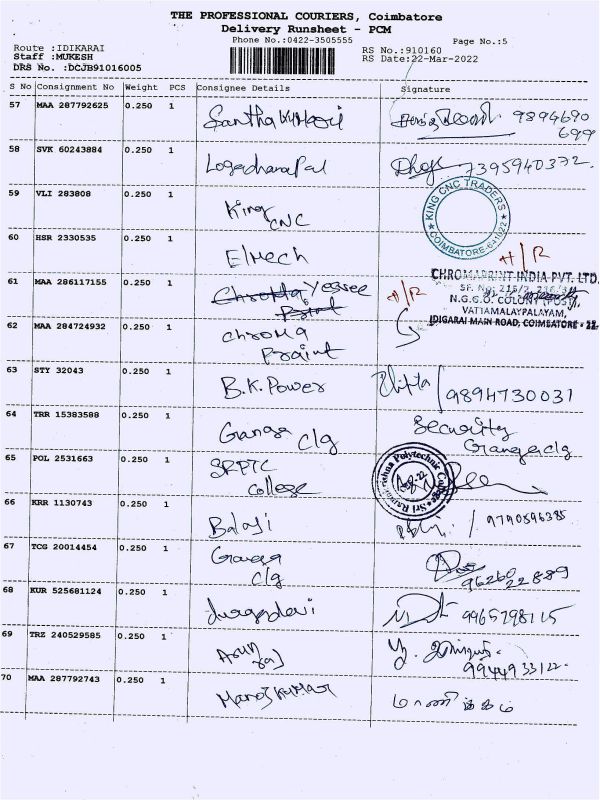 THE PROFESSIONAL COURIERS, Coimbatore
Delivery Runsheet - PCM
Phone No.:0422-3505555
Page No.:5
Route :IDIKARAI
RS No.:910160
Staff :MUKESH
RS Date:22-Mar-2022
DRS No. :DCJB91016005
S No Consignment No Weight PCS Consignee Details Signature
57 MAA 287792625 0.250 1 9894690
699
58 SVK 60243884 0.250 1 7395940372.
59 VLI 283808 0.250 1 King
CNC
KING CNC TRADERS
COIMBATORE-641022
60 HSR 2330535 0.250 1 Elmech
H/R
CHROMAPRINT INDIA PVT. LTD.
61 MAA 286117155 0.250 1 Chroma Yessee
Print
H/R
SF. No: 215/2, 216/3
N.G.G.O. COLONY (POST),
VATTAMALAYPALAYAM,
IDIGARAI MAIN ROAD, COIMBATORE - 22.
62 MAA 284724932 0.250 1 Chroma
Praint
63 STY 32043 0.250 1 B.K. Power 9894730031
64 TRR 15383588 0.250 1 Ganga Security
Clg Ganga clg
65 POL 2531663 0.250 1 SRPTC
College
Sri Ramakrishna Polytechnic College
66 KRR 1130743 0.250 1 Balaji 9790596385
67 TCG 20014454 0.250 1 Ganga
Clg 96260 22889
68 KUR 525681124 0.250 1 9965298115
69 TRZ 240529585 0.250 1 Arun
raj 9944933122.
70 MAA 287792743 0.250 1 Manoj kumar மாணிக்கம்